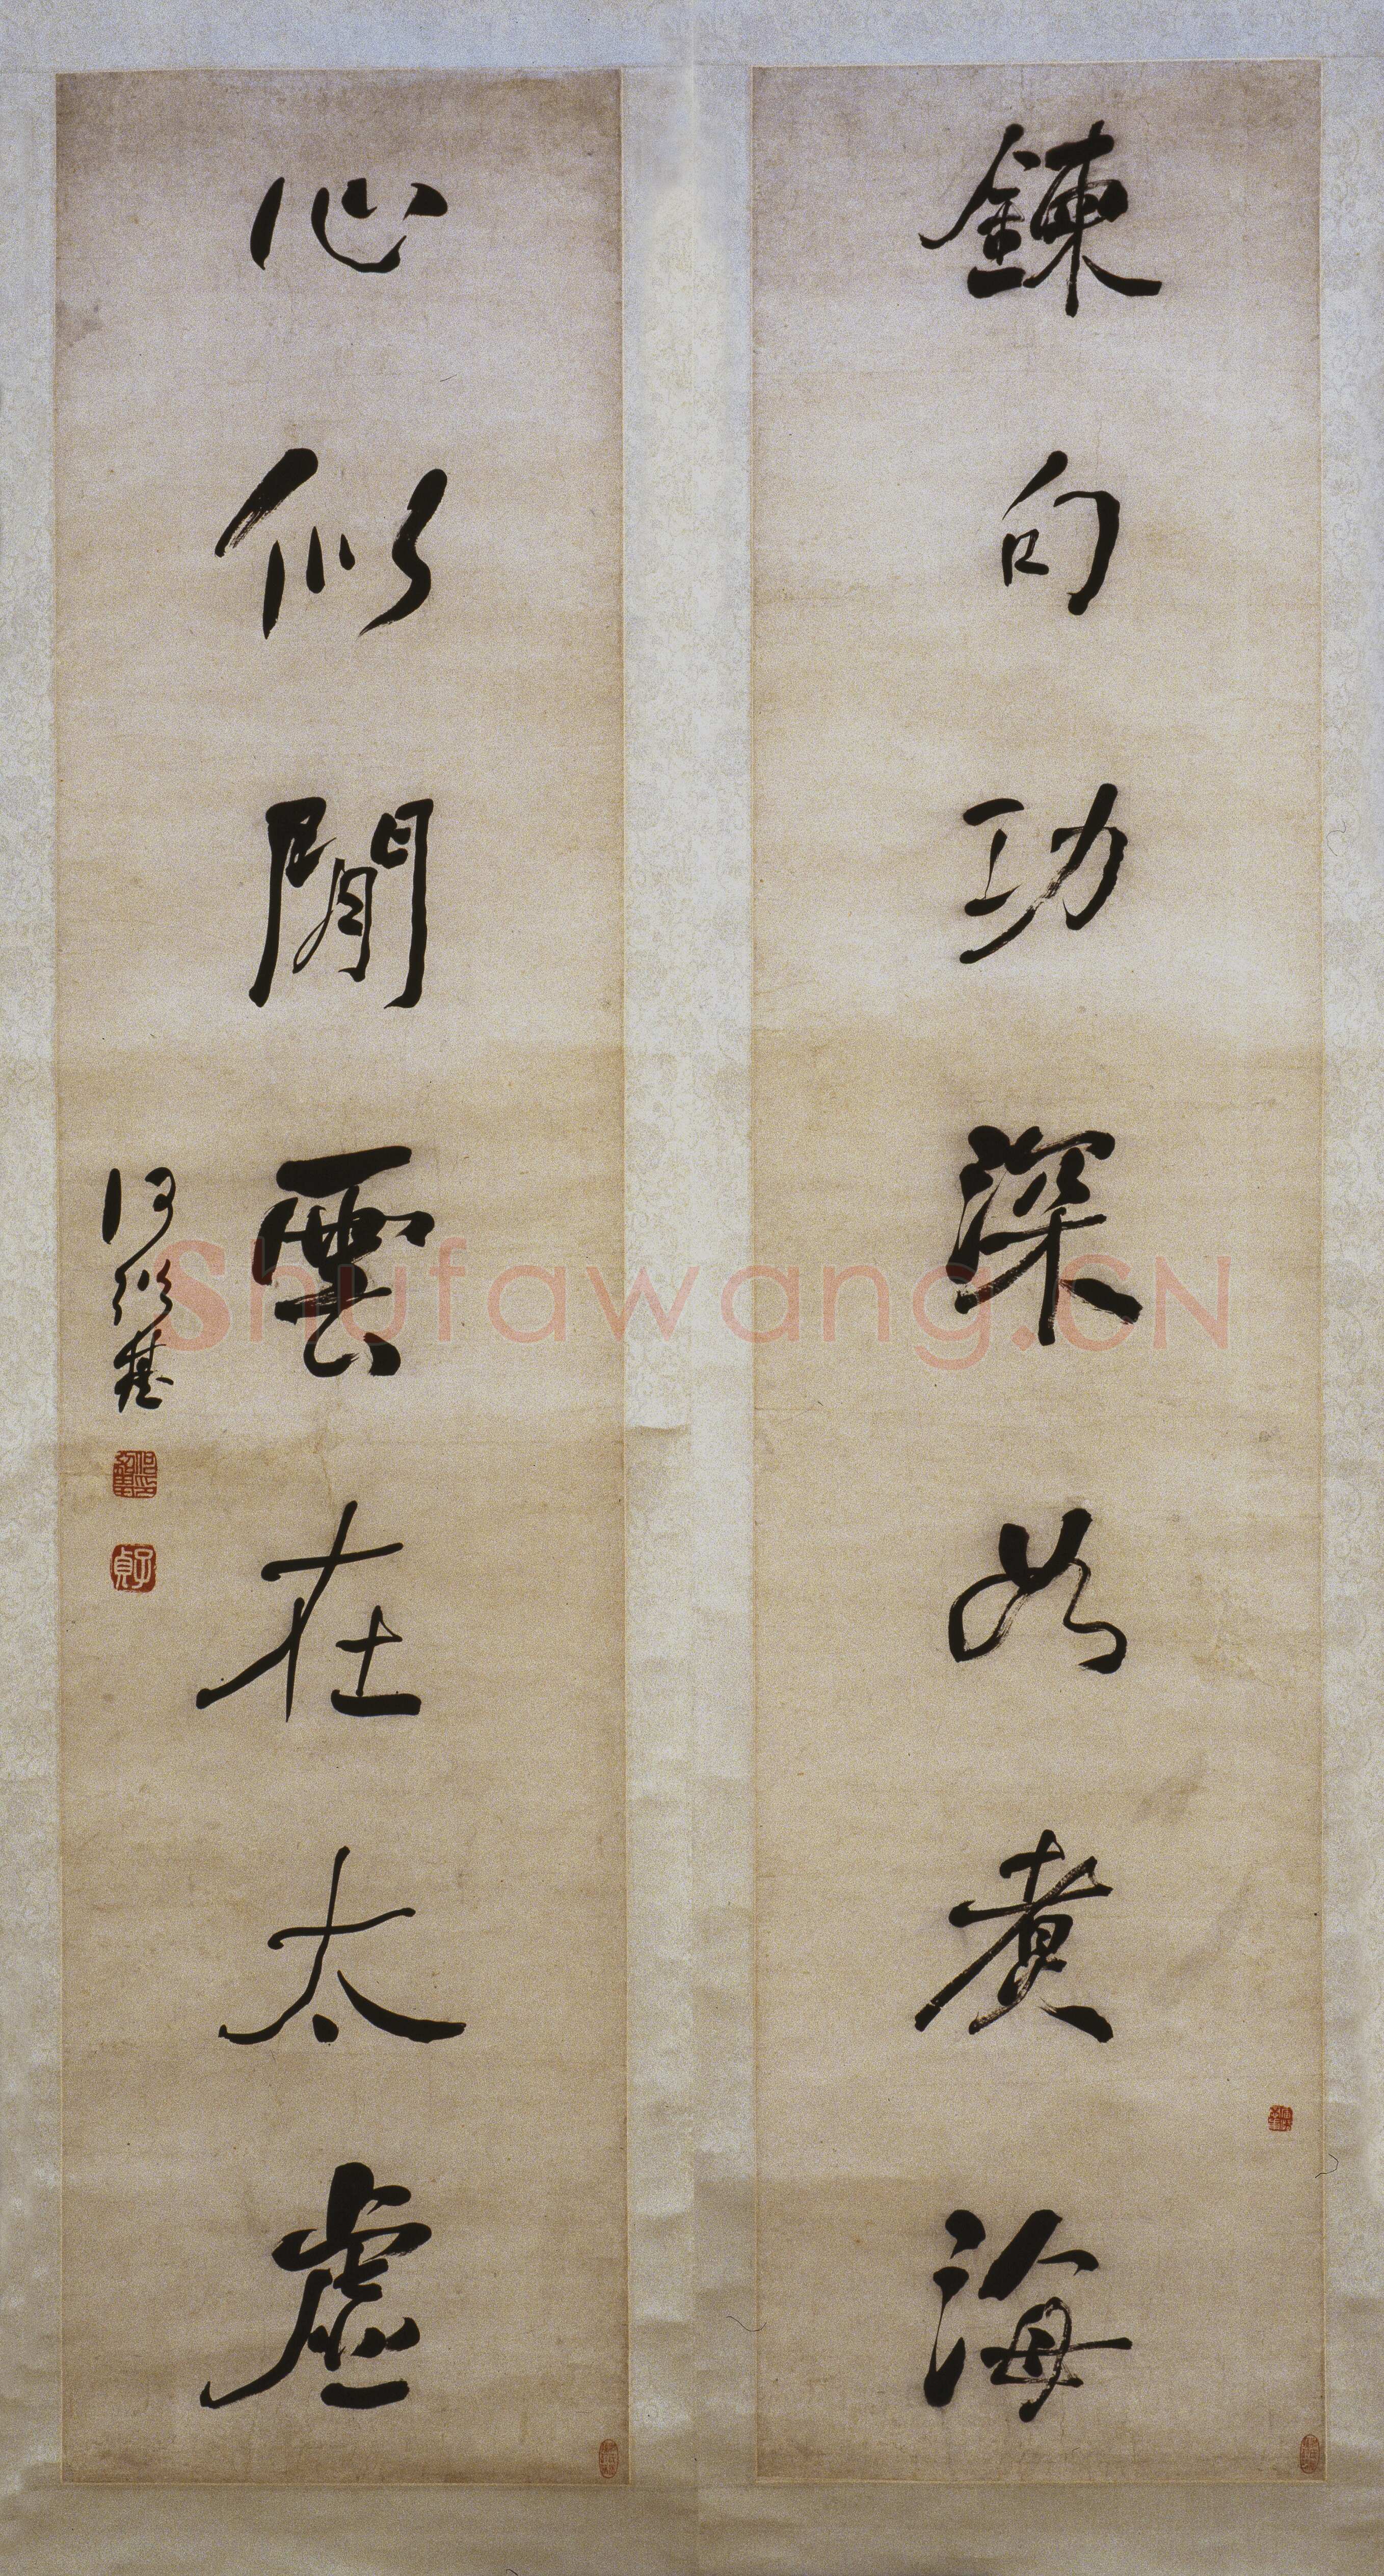 鍊句功深如煮海
心似閒雲在太虛
何紹基
子貞
Shufawang.CN